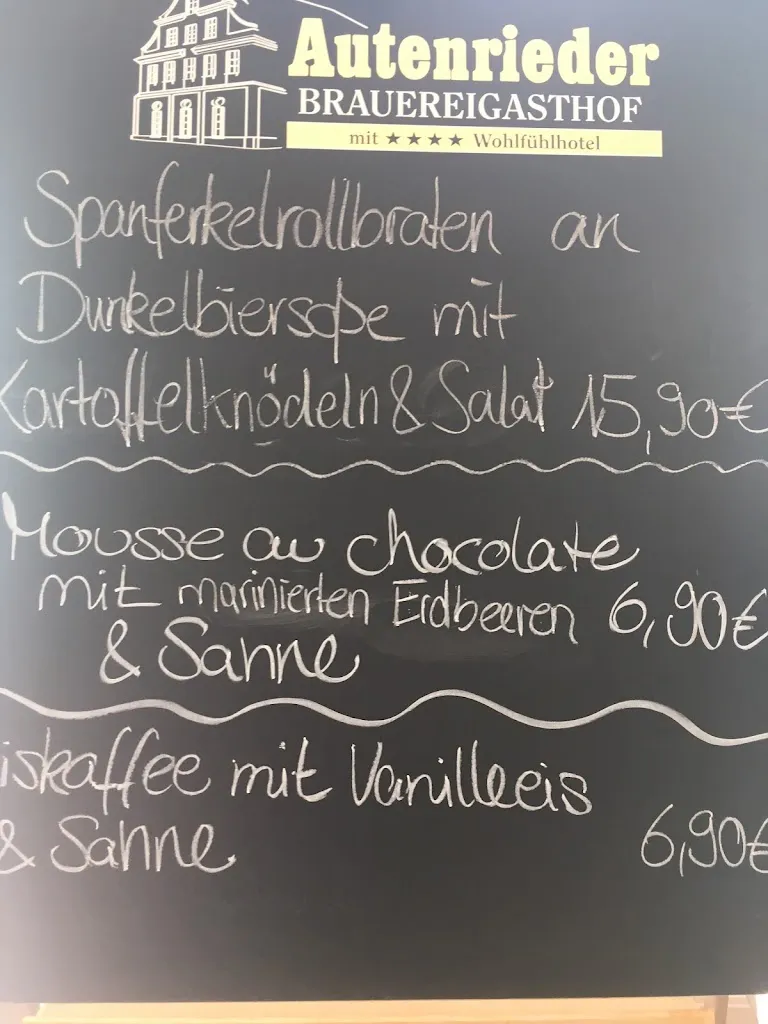 Autenrieder
BRAUEREIGASTHOF
mit ★★★★ Wohlfühlhotel
Spanferkelrollbraten an
Dunkelbiersoße mit
Kartoffelknödeln & Salat 15,90€
Mousse au chocolate
mit marinierten Erdbeeren 6,90€
& Sahne
iskaffee mit Vanilleeis
& Sahne 6,90€